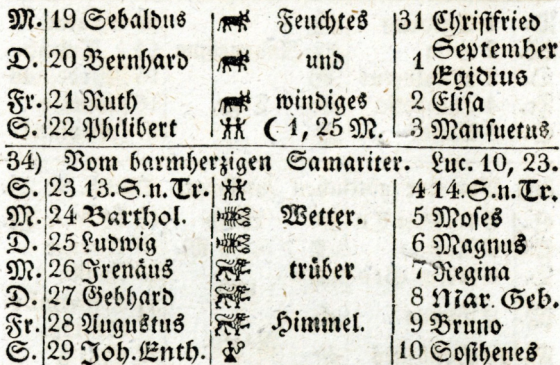 M. 19 Sebaldus Feuchtes 31 Christfried
September
D. 20 Bernhard und 1 Egidius
Fr. 21 Ruth windiges 2 Elisa
S. 22 Philibert ☾ 1, 25 M. 3 Mansuetus
34) Vom barmherzigen Samariter. Luc. 10, 23.
S. 23 13. S. n. Tr. 4 14. S. n. Tr.
M. 24 Barthol. Wetter. 5 Moses
D. 25 Ludwig 6 Magnus
M. 26 Irenäus trüber 7 Regina
D. 27 Gebhard 8 Mar. Geb.
Fr. 28 Augustus Himmel. 9 Bruno
S. 29 Joh. Enth. 10 Sosthenes